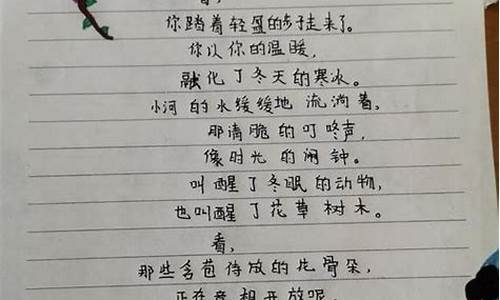 春,
你踏着轻盈的步子走来了。
你以你的温暖,
融化了冬天的寒冰。
小河的水缓缓地流淌着,
那清脆的叮咚声,
像时光的闹钟。
叫醒了冬眠的动物,
也叫醒了花草树木。
看,
那些含苞待放的花骨朵,
正在竞相开放呢,